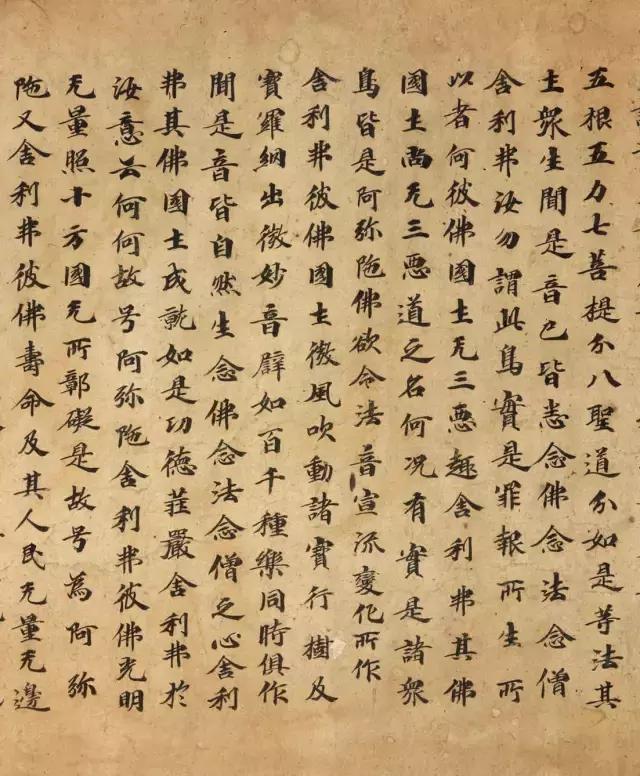 五根五力七菩提分八聖道分如是等法其
土眾生聞是音已皆悉念佛念法念僧
舍利弗汝勿謂此鳥實是罪報所生所
以者何彼佛國土无三惡趣舍利弗其佛
國土尚无三惡道之名何況有實是諸眾
鳥皆是阿弥陁佛欲令法音宣流變化所作
舍利弗彼佛國土微風吹動諸寶行樹及
寶羅納出微妙音辟如百千種樂同時俱作
聞是音皆自然生念佛念法念僧之心舍利
弗其佛國土成就如是功德莊嚴舍利弗於
汝意云何何故号阿弥陁舍利弗彼佛光明
无量照十方國无所鄣礙是故号為阿弥
陁又舍利弗彼佛壽命及其人民无量无邊